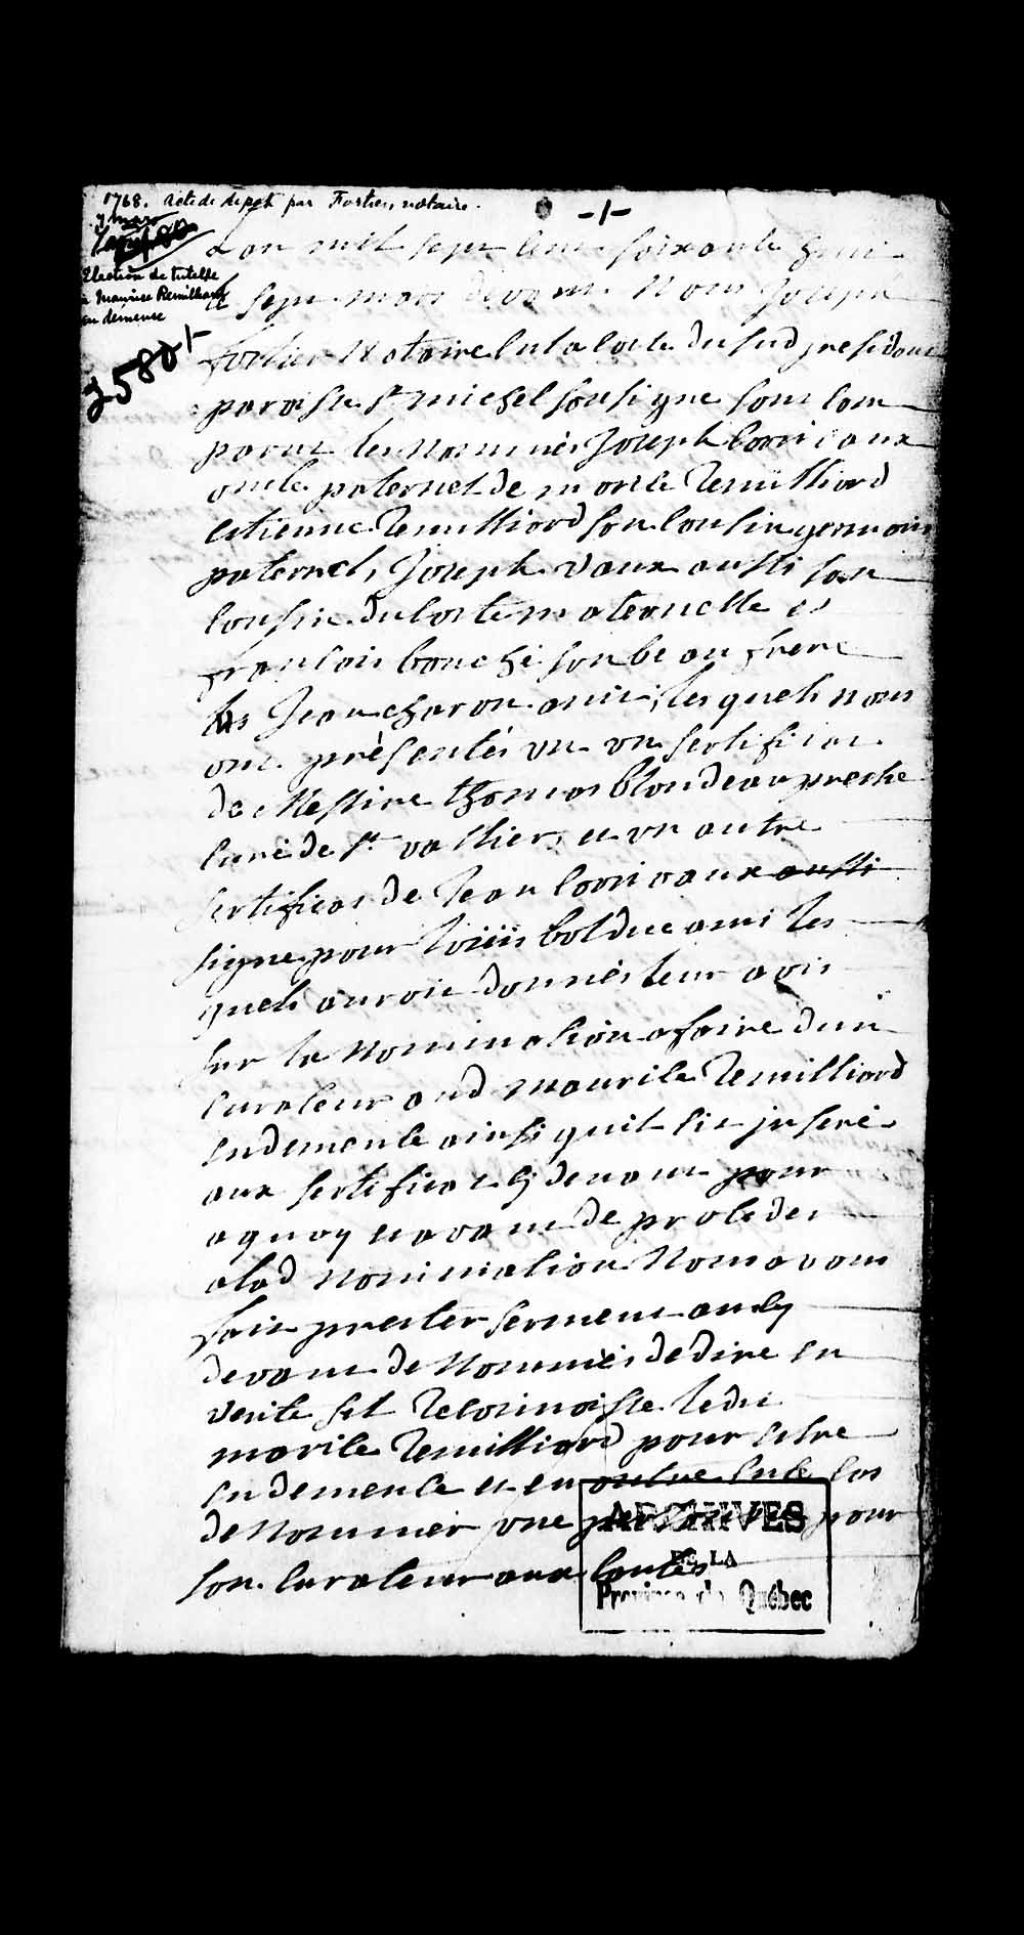 1768. Acte de depot par Fortier, notaire.
7 mars
-1-
Election de tutelle
à Maurice Remillard
en demence
3580 1-
Lan mil sept cent soixante huit
le sept mars devant Nous Joseph
fortier Notaire en la coste du sud residant
paroisse st michel sousigne sont com
parut les Nommés Joseph corrivaux
oncle paternel de morile Remilliard
etienne Remilliard son cousin germain
paternel, Joseph vaux aussi son
cousin du coste maternelle et
francois bouché son beau frere
Jean charon amis, lesquels nous
ont présentés un un sertificat
de Messire thomas blondeau prestre
curé de st vallier, et un autre
sertificat de Jean corrivaux aussi
signe pour loüis bolduc ami les
quels auroit donnés leur avis
sur la Nomination afaire dun
curateur aud maurile Remilliard
en demence ainsi quil sit jnseré
aux sertificat cy devant pour
aquoy et avant de proceder
alad nomination Nous avons
fait prester serment au cy
devant de Nommés de dire en
verite sil Reconnoisse ledit
morile Remilliard pour estre
en demence et en outre en ce cas
de Nommer une personne pour
son curateur aux causes
ARCHIVES
DE LA
Province de Québec